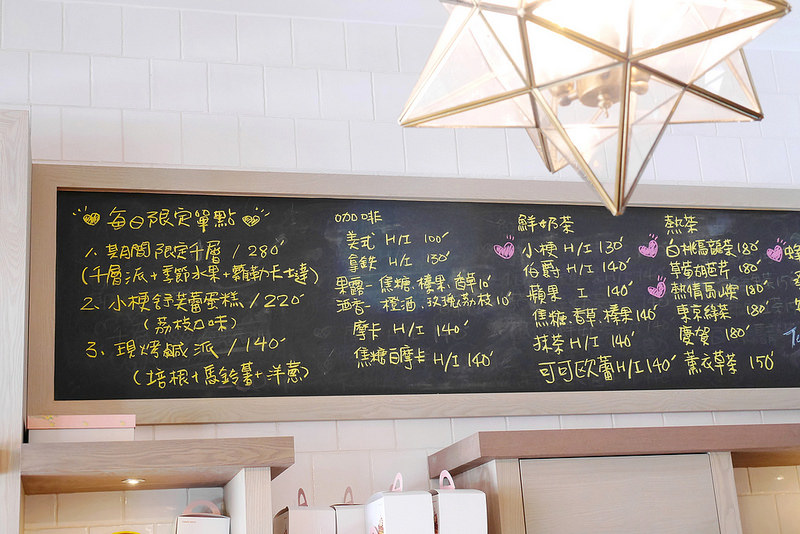 每日限定單點
1. 期間限定千層 / 280
(千層派+季節水果+卡士達)
2. 小梗舒芙蕾蛋糕 / 220
(荔枝口味)
3. 現烤鹹派 / 140
(培根+馬鈴薯+洋蔥)
咖啡
美式 H/I 100
拿鐵 H/I 130
果露-焦糖.榛果.香草10
酒香-橙酒.玫瑰.荔枝10
摩卡 H/I 140
焦糖白摩卡 H/I 140
鮮奶茶
小梗 H/I 130
伯爵 H/I 140
蘋果 I 140
焦糖.香草.榛果140
抹茶 H/I 140
可可歐蕾H/I 140
熱茶
白桃烏龍茶180
草莓 180
熱情島嶼180
東京綠茶 180
慶賀 180
薰衣草茶 150